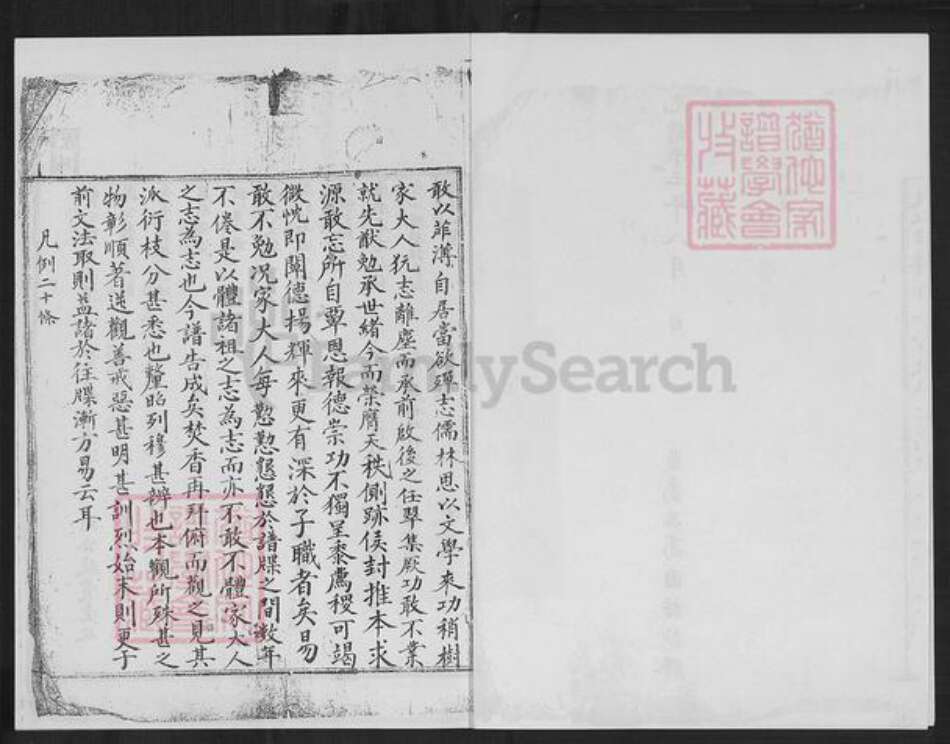 敢以菲薄自居當欲殫志儒林思以文學來功稍樹
家大人犹志離塵而承前啟後之任畢集厥功敢不業
就先猷勉承世緒今而榮膺天秩側跡侯封推本求
源敢忘所自覃恩報德崇功不獨呈黍薦稷可竭
微忱即闡德揚輝來更有深於子職者矣易
敢不勉況家大人每懃懃懇懇於譜牒之間數年
不倦是以體諸祖之志為志而亦不敢不體家大人
之志為志也今譜告成矣焚香再拜俯而觀之見其
派衍枝分甚悉也釐昭列穆甚辨也本觀所殊甚之
物彰順著逆觀善戒惡甚明甚訓烈始末則更于
前文法取則益諸於往牒漸方易云耳
凡例二十條
猶他家
譜學會
收藏
FamilySearch